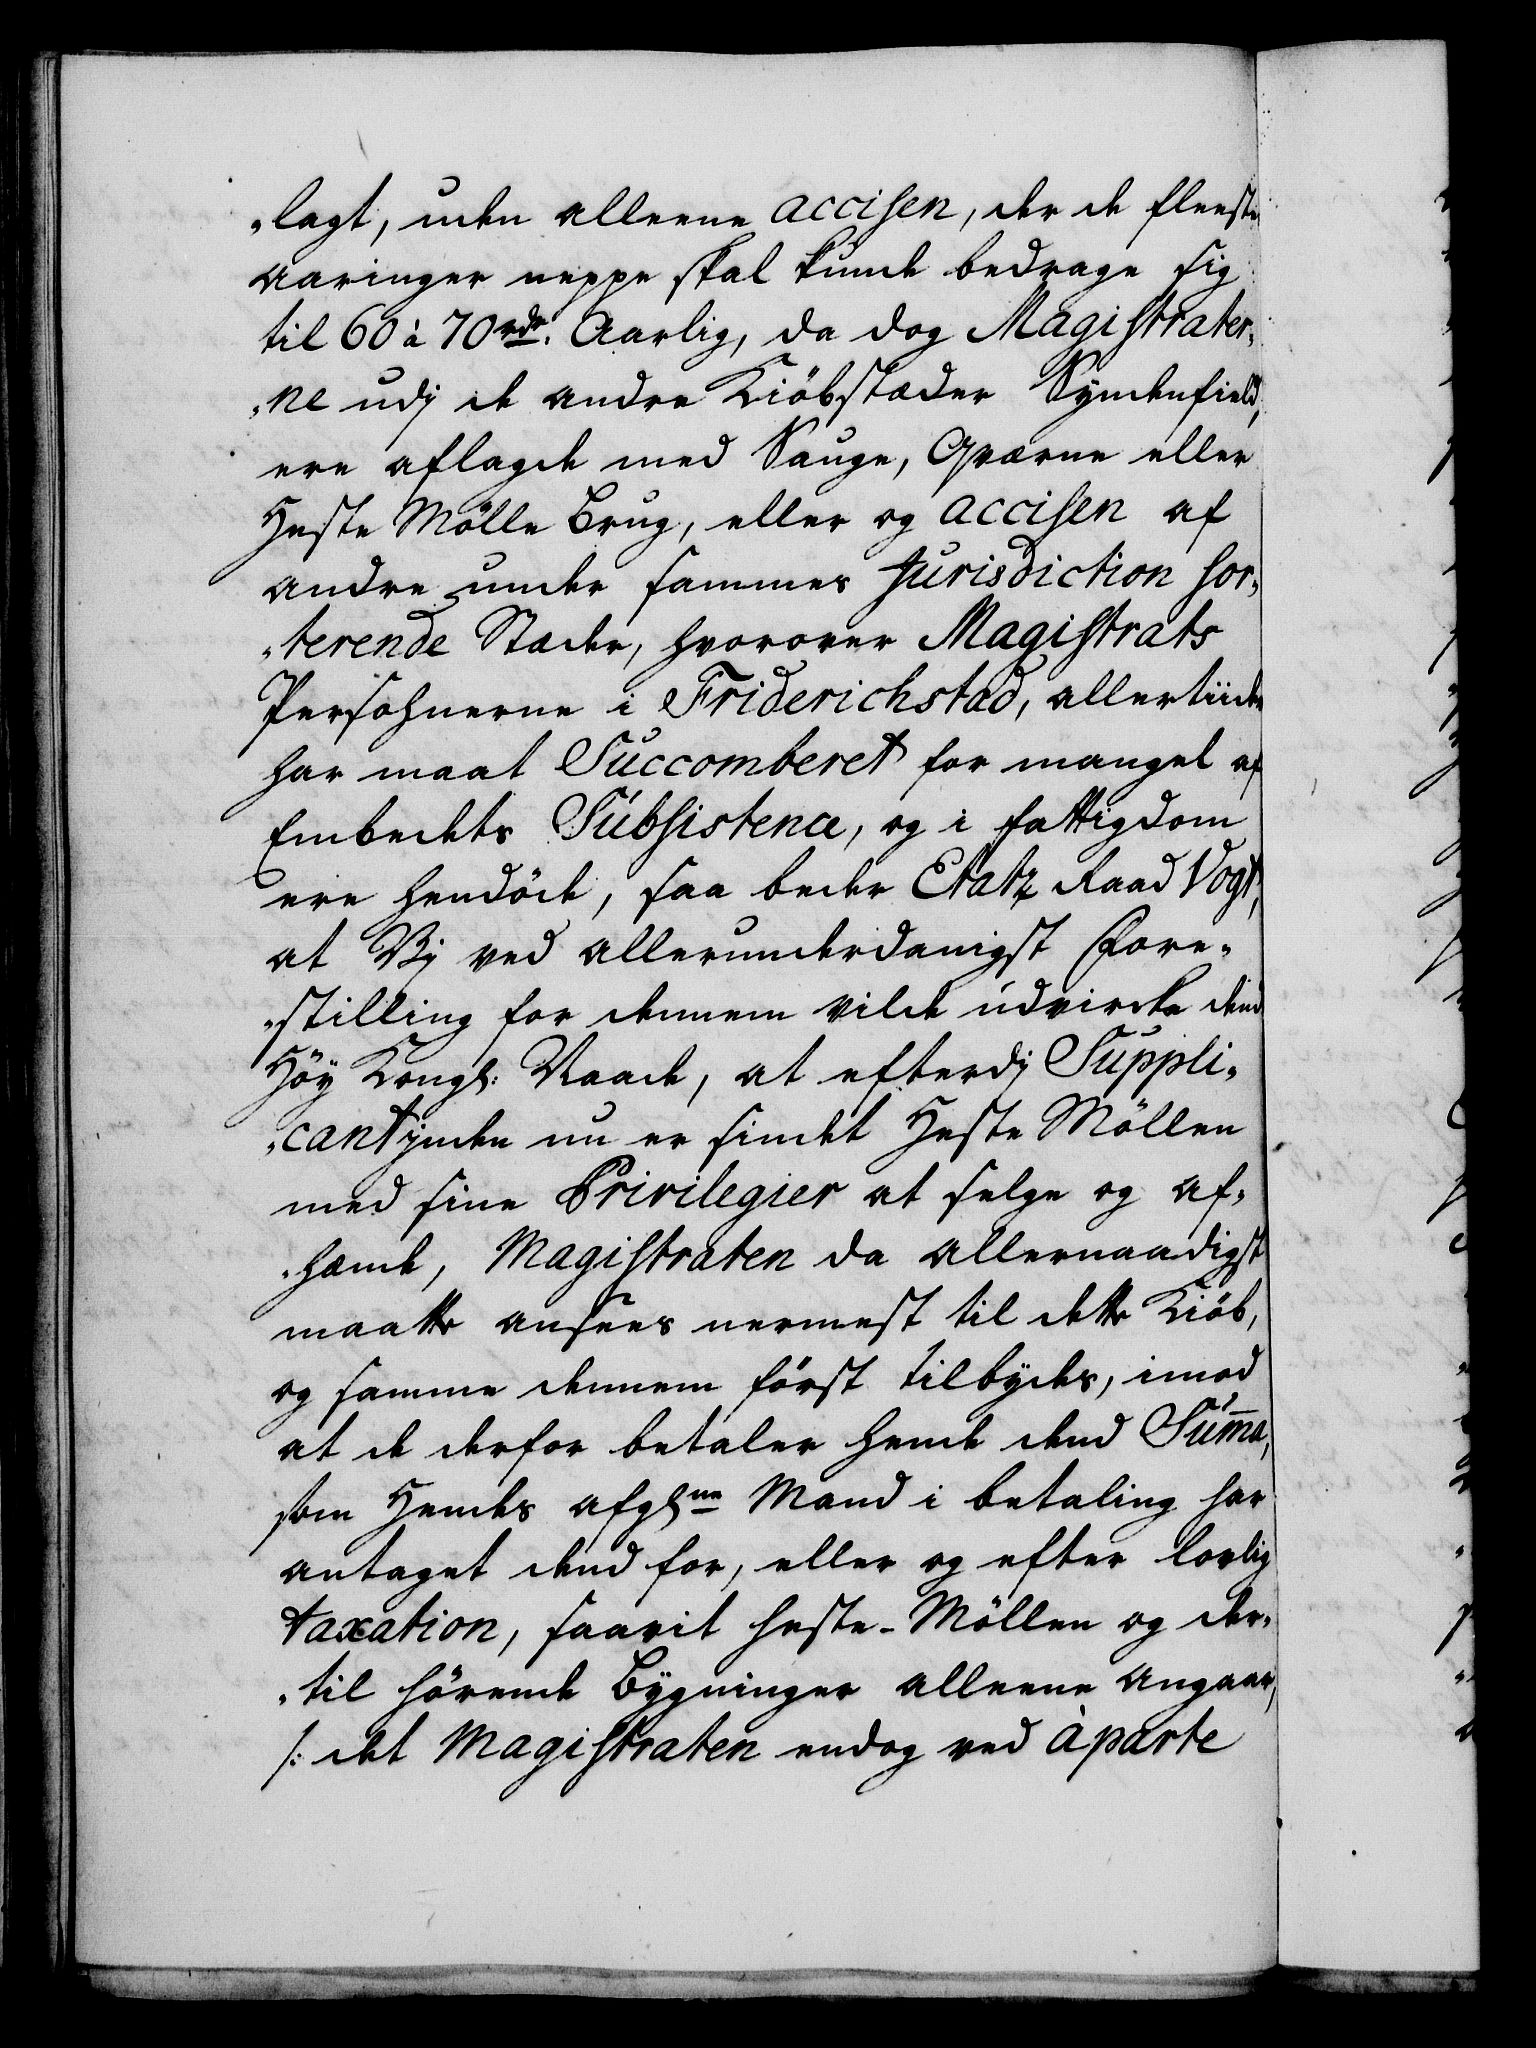 „lagt, uden alleene accisen, der de fleeste
Aaringer neppe skal kunde bedrage sig
til 60 à 70 rdr. Aarlig, da dog Magistrater„
„ne udj de andre Kiöbstæder Syndenfield,
ere aflagde med Sauge, Qværne eller
Heste Mölle Brug, eller og accisen af
andre under sammes Jurisdiction sor„
„terende Stæder, hvorover Magistrats
Persohnerne i Friderichstad, allertiide
har maat Succomberet for mangel af
Embedets Subsistence, og i fattigdom
ere hendöde, saa beder Etatz Raad Vogt,
at Vj ved allerunderdanigst Fore„
„stilling for dennem vilde udvircke dend
Höy Kongl: Naade, at efterdj Suppli„
„cantjnden nu er sindet Heste Möllen
med sine Privilegier at selge og af„
„hænde, Magistraten da allernaadigst
maatte ansees nermest til dette Kiöb,
og samme dennem först tilbydes, imod
at de derfor betaler hende dend Suma,
som Hendes afgl.ne Mand i betaling har
antaget dend for, eller og efter lovlig
taxation, saavit heste-Möllen og der„
„til hörende Bygninger alleene angaar,
/: det Magistraten endog ved àparte